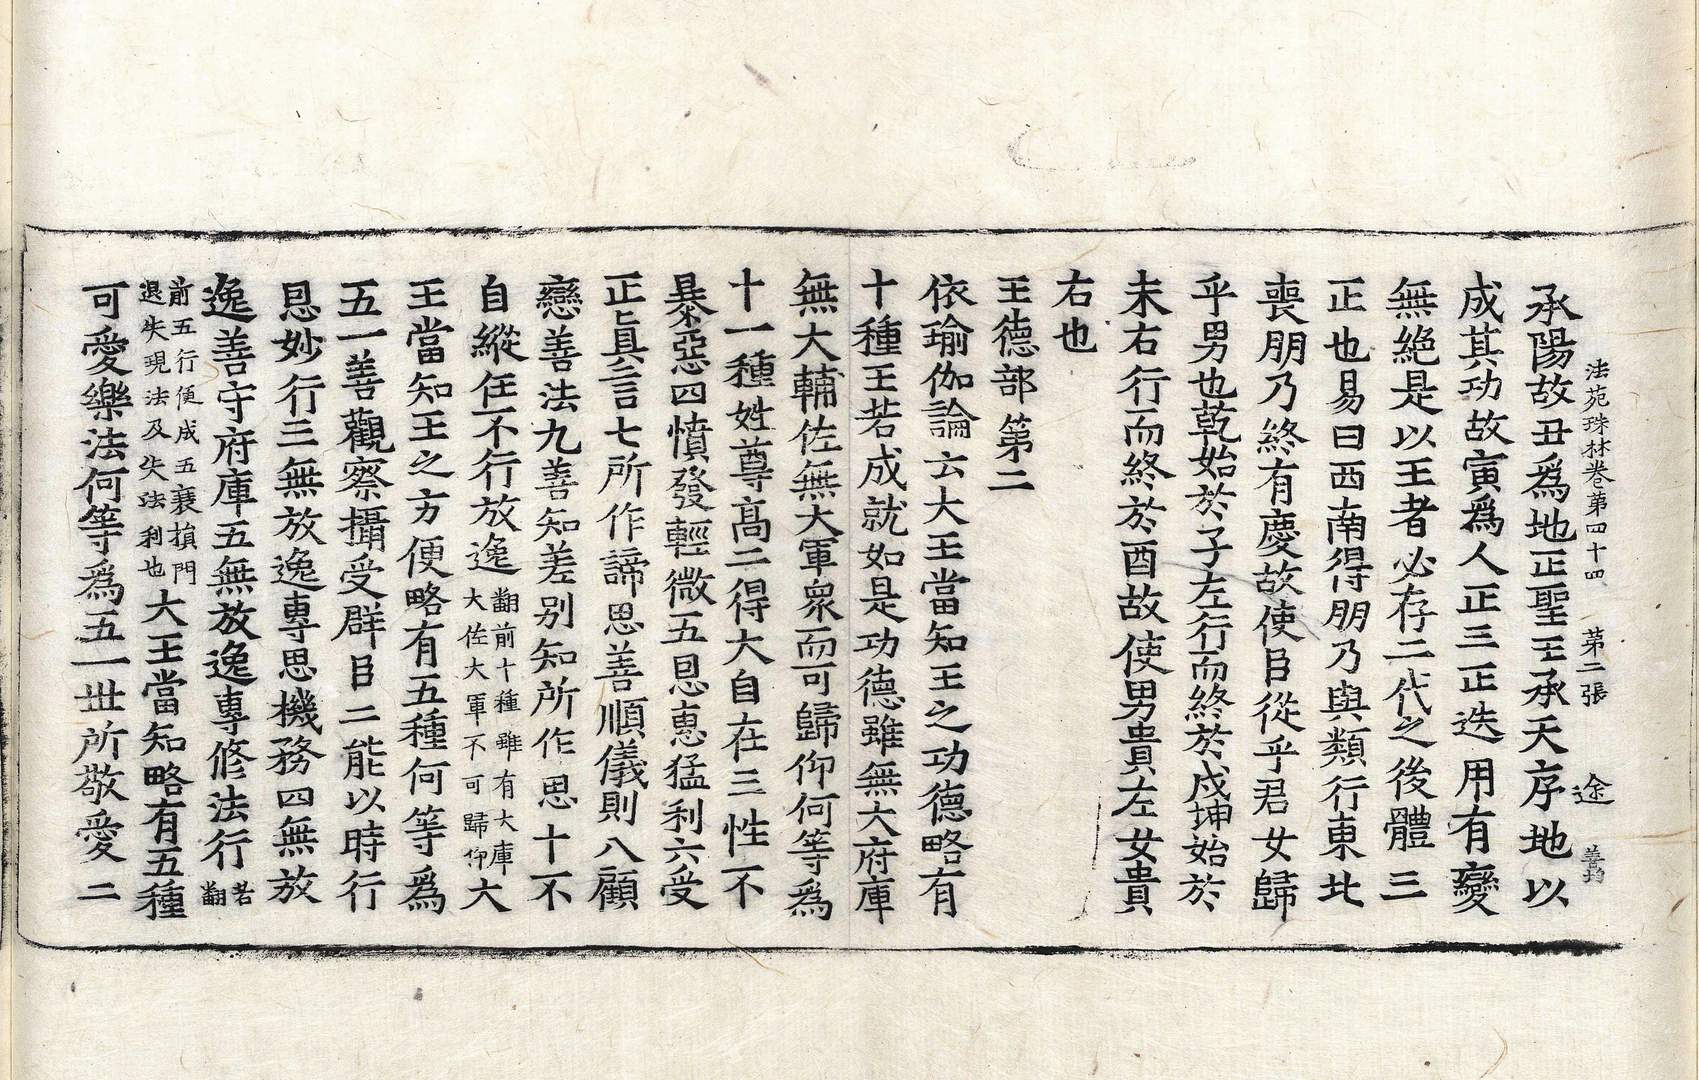 法苑珠林卷第四十四 第二張 途
承陽故丑爲地正聖王承天序地以
成其功故寅爲人正三正迭用有變
無絶是以王者必存二代之後體三
正也易曰西南得朋乃與類行東北
喪朋乃終有慶故使臣從乎君女歸
乎男也乾始於子左行而終於戍坤始於
未右行而終於酉故使男貴左女貴
右也
王德部第二
依瑜伽論云大王當知王之功德略有
十種王若成就如是功德雖無大府庫
無大輔佐無大軍衆而可歸仰何等爲
十一種姓尊高二得大自在三性不
暴惡四憤發輕微五恩惠猛利六受
正直言七所作諦思善順儀則八顧
戀善法九善知差別知所作思十不
自縱任不行放逸翻前十種雖有大庫大佐大軍不可歸仰大
王當知王之方便略有五種何等爲
五一善觀察攝受群臣二能以時行
恩妙行三無放逸專思機務四無放
逸善守府庫五無放逸專修法行若翻
前五行便成五衰損門退失現法及失法利也大王當知略有五種
可愛樂法何等爲五一世所敬愛二